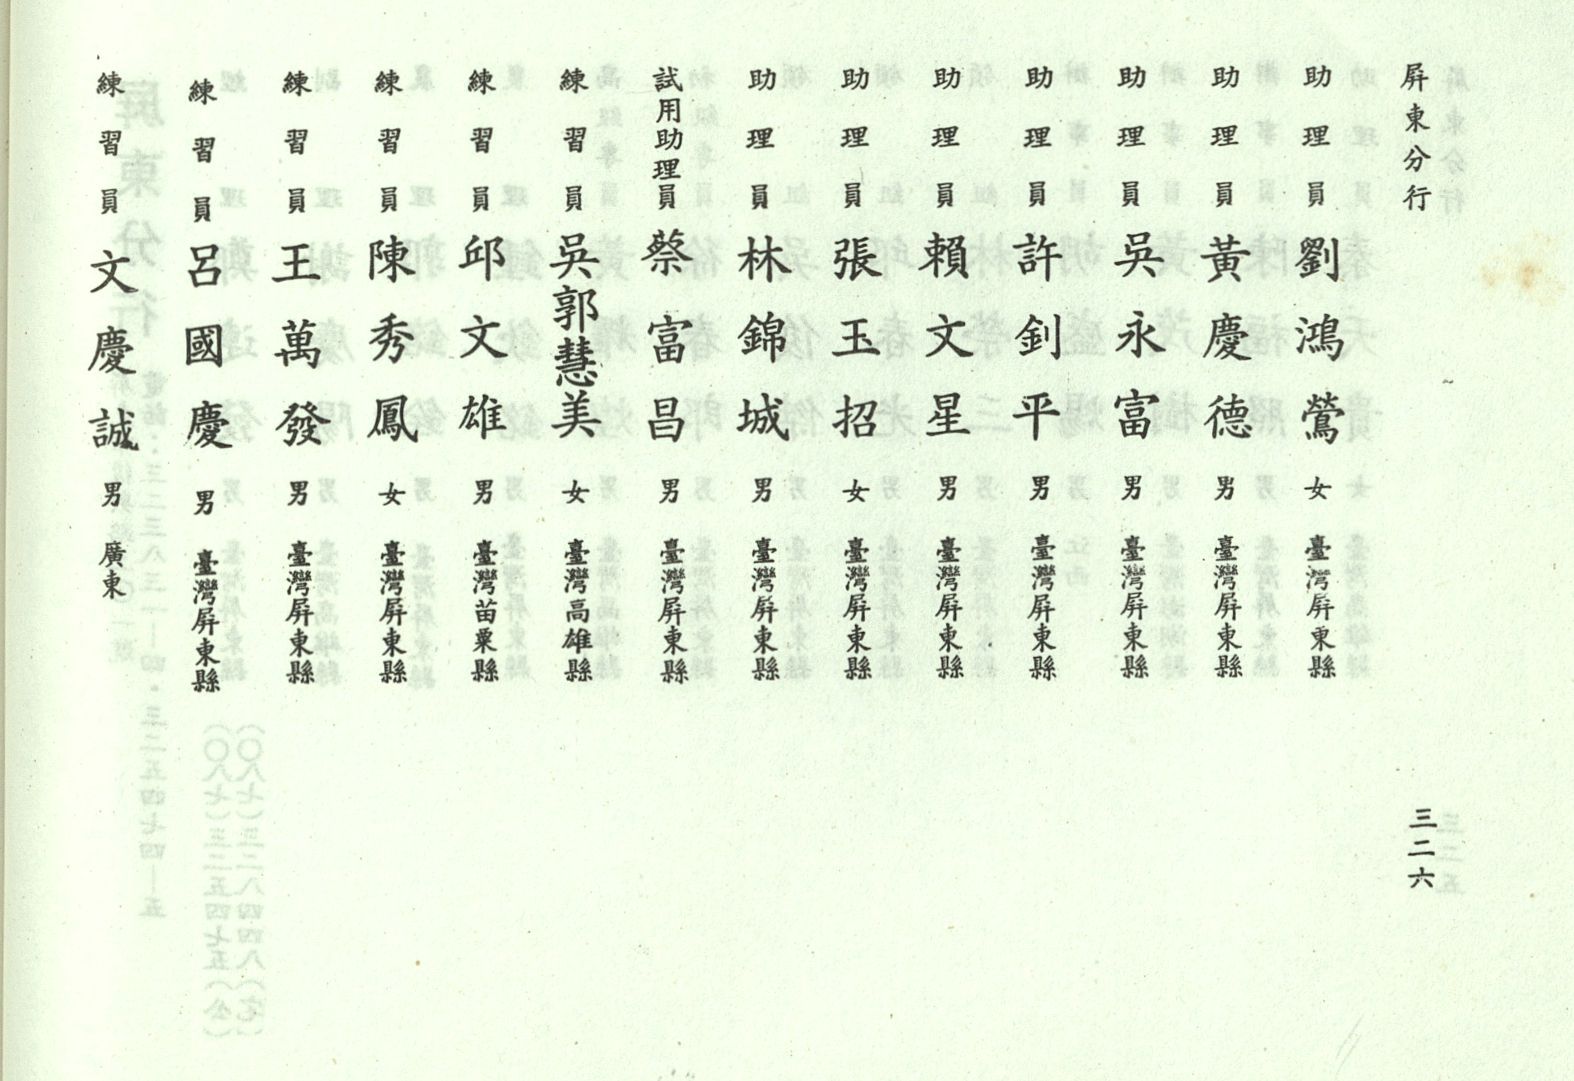 屏東分行
三二六
助理員 劉鴻鶯 女 臺灣屏東縣
助理員 黃慶德 男 臺灣屏東縣
助理員 吳永富 男 臺灣屏東縣
助理員 許釗平 男 臺灣屏東縣
助理員 賴文星 男 臺灣屏東縣
助理員 張玉招 女 臺灣屏東縣
助理員 林錦城 男 臺灣屏東縣
試用助理員 蔡富昌 男 臺灣屏東縣
練習員 吳郭慧美 女 臺灣高雄縣
練習員 邱文雄 男 臺灣苗栗縣
練習員 陳秀鳳 女 臺灣屏東縣
練習員 王萬發 男 臺灣屏東縣
練習員 呂國慶 男 臺灣屏東縣
練習員 文慶誠 男 廣東